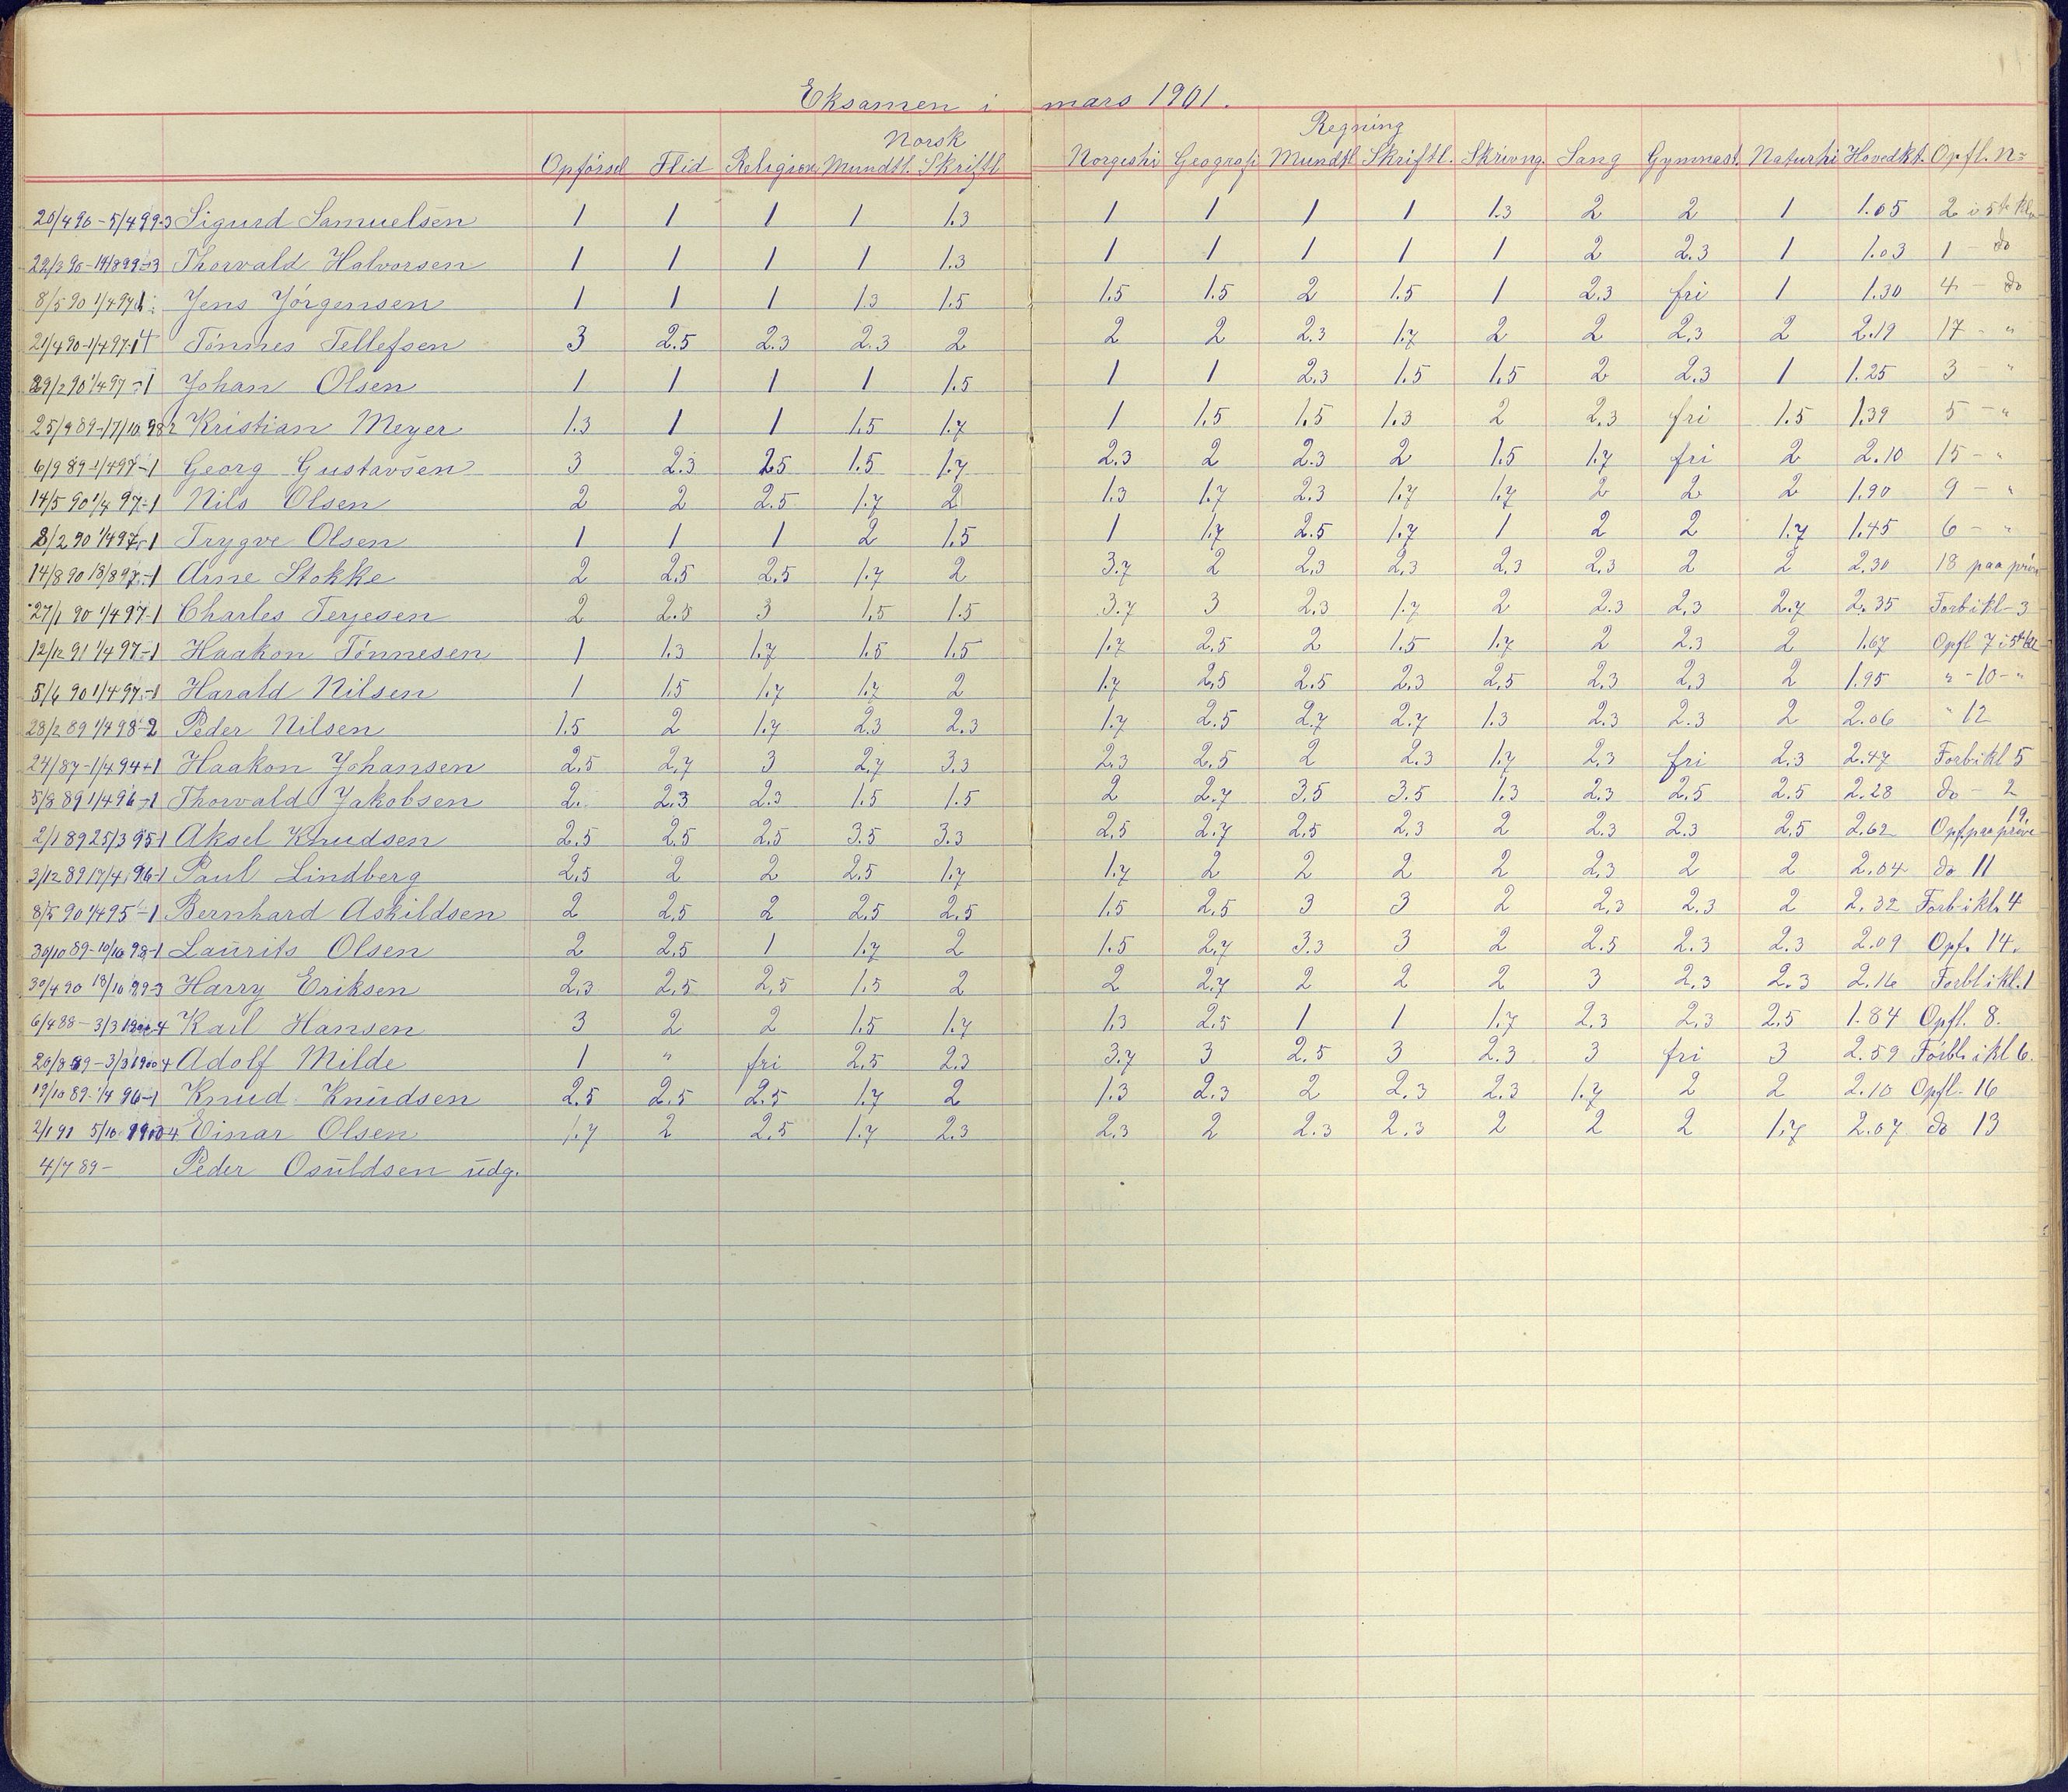 Eksamen i mars 1901.
Norsk Regning
Opførsel Flid Religion Mundtl. Skriftl Norgeshi Geografi Mundtl Skriftl. Skrivng. Sang Gymnast. Naturhi Hovedkt. Opfl. No
20/4 90 - 5/4 99-3 Sigurd Samuelsen 1 1 1 1 1.3 1 1 1 1 1.3 2 2 1 1.05 2 i 5te kl.
22/3 90 - 14/8 99-3 Thorvald Halvorsen 1 1 1 1 1.3 1 1 1 1 1 2 2.3 1 1.03 1 - do
8/5 90 1/4 97 1 Jens Jörgensen 1 1 1 1.3 1.5 1.5 1.5 2 1.5 1 2.3 fri 1 1.30 4 - do
21/4 90-1/4 97-1 Tönnes Tellefsen 3 2.5 2.3 2.3 2 2 2 2.3 1.7 2 2 2.3 2 2.19 17 - "
29/2 90 1/4 97 -1 Johan Olsen 1 1 1 1 1.5 1 1 2.3 1.5 1.5 2 2.3 1 1.25 3 - "
25/9 89-17/10 98 2 Kristian Meyer 1.3 1 1 1.5 1.7 1 1.5 1.5 1.3 2 2.3 fri 1.5 1.39 5 - "
6/9 89-1/4 97-1 Georg Gustavsen 3 2.3 2.5 1.5 1.7 2.3 2 2.3 2 1.5 1.7 fri 2 2.10 15 - "
14/5 90 1/4 97-1 Nils Olsen 2 2 2.5 1.7 2 1.3 1.7 2.3 1.7 1.7 2 2 2 1.90 9 - "
8/2 90 1/4 97-1 Trygve Olsen 1 1 1 2 1.5 1 1.7 2.5 1.7 1 2 2 1.7 1.45 6 - "
14/8 90 18/8 97-1 Arne Stokke 2 2.5 2.5 1.7 2 3.7 2 2.3 2.3 2.3 2.3 2 2 2.30 18 paa prøve
27/1 90 1/4 97-1 Charles Terjesen 2 2.5 3 1.5 1.5 3.7 3 2.3 1.7 2 2.3 2.3 2.7 2.35 Forb i kl 3
12/12 91 1/4 97-1 Haakon Tönnesen 1 1.3 1.7 1.5 1.5 1.7 2.5 2 1.5 1.7 2 2.3 2 1.67 Opfl 7 i 5te kl
5/6 90 1/4 97-1 Harald Nilsen 1 1.5 1.7 1.7 2 1.7 2.5 2.5 2.3 2.5 2.3 2.3 2 1.95 " - 10 - "
28/2 89 1/4 98-2 Peder Nilsen 1.5 2 1.7 2.3 2.3 1.7 2.5 2.7 2.7 1.3 2.3 2.3 2 2.06 " 12
24/87-1/4 94-1 Haakon Johansen 2.5 2.7 3 2.7 3.3 2.3 2.5 2 2.3 1.7 2.3 fri 2.3 2.47 Forb i kl 5
5/8 89 1/4 96-1 Thorvald Jakobsen 2. 2.3 2.3 1.5 1.5 2 2.7 3.5 3.5 1.3 2.3 2.5 2.5 2.28 do - 2
2/1 89 25/3 95-1 Aksel Knudsen 2.5 2.5 2.5 3.5 3.3 2.5 2.7 2.5 2.3 2 2.3 2.3 2.5 2.62 Opf. paa prøve 19.
3/12 89 17/4 96-1 Paul Lindberg 2.5 2 2 2.5 1.7 1.7 2 2 2 2 2.3 2 2 2.04 do 11
8/5 90 1/4 95-1 Bernhard Askildsen 2 2.5 2 2.5 2.5 1.5 2.5 3 3 2 2.3 2.3 2 2.32 Forb i kl. 4
30/10 89-10/10 98-1 Laurits Olsen 2 2.5 1 1.7 2 1.5 2.7 3.3 3 2 2.5 2.3 2.3 2.09 Opf. 14.
30/4 90 18/10 99-3 Harry Eriksen 2.3 2.5 2.5 1.5 2 2 2.7 2 2 2 3 2.3 2.3 2.16 Forbl i kl. 1
6/4 88 - 3/3 1900-4 Karl Hansen 3 2 2 1.5 1.7 1.3 2.5 1 1 1.7 2.3 2.3 2.5 1.84 Opfl. 8.
20/8 89 - 3/3 1900 4 Adolf Milde 1 " fri 2.5 2.3 3.7 3 2.5 3 2.3 3 fri 3 2.59 Forbl. i kl 6.
19/10 89-1/4 96-1 Knud Knudsen 2.5 2.5 2.5 1.7 2 1.3 2.3 2 2.3 2.3 1.7 2 2 2.10 Opfl. 16
2/1 91 5/10 1900 4 Einar Olsen 1.7 2 2.5 1.7 2.3 2.3 2 2.3 2.3 2 2 2 1.7 2.07 do 13
4/7 89 - Peder Osuldsen udg.